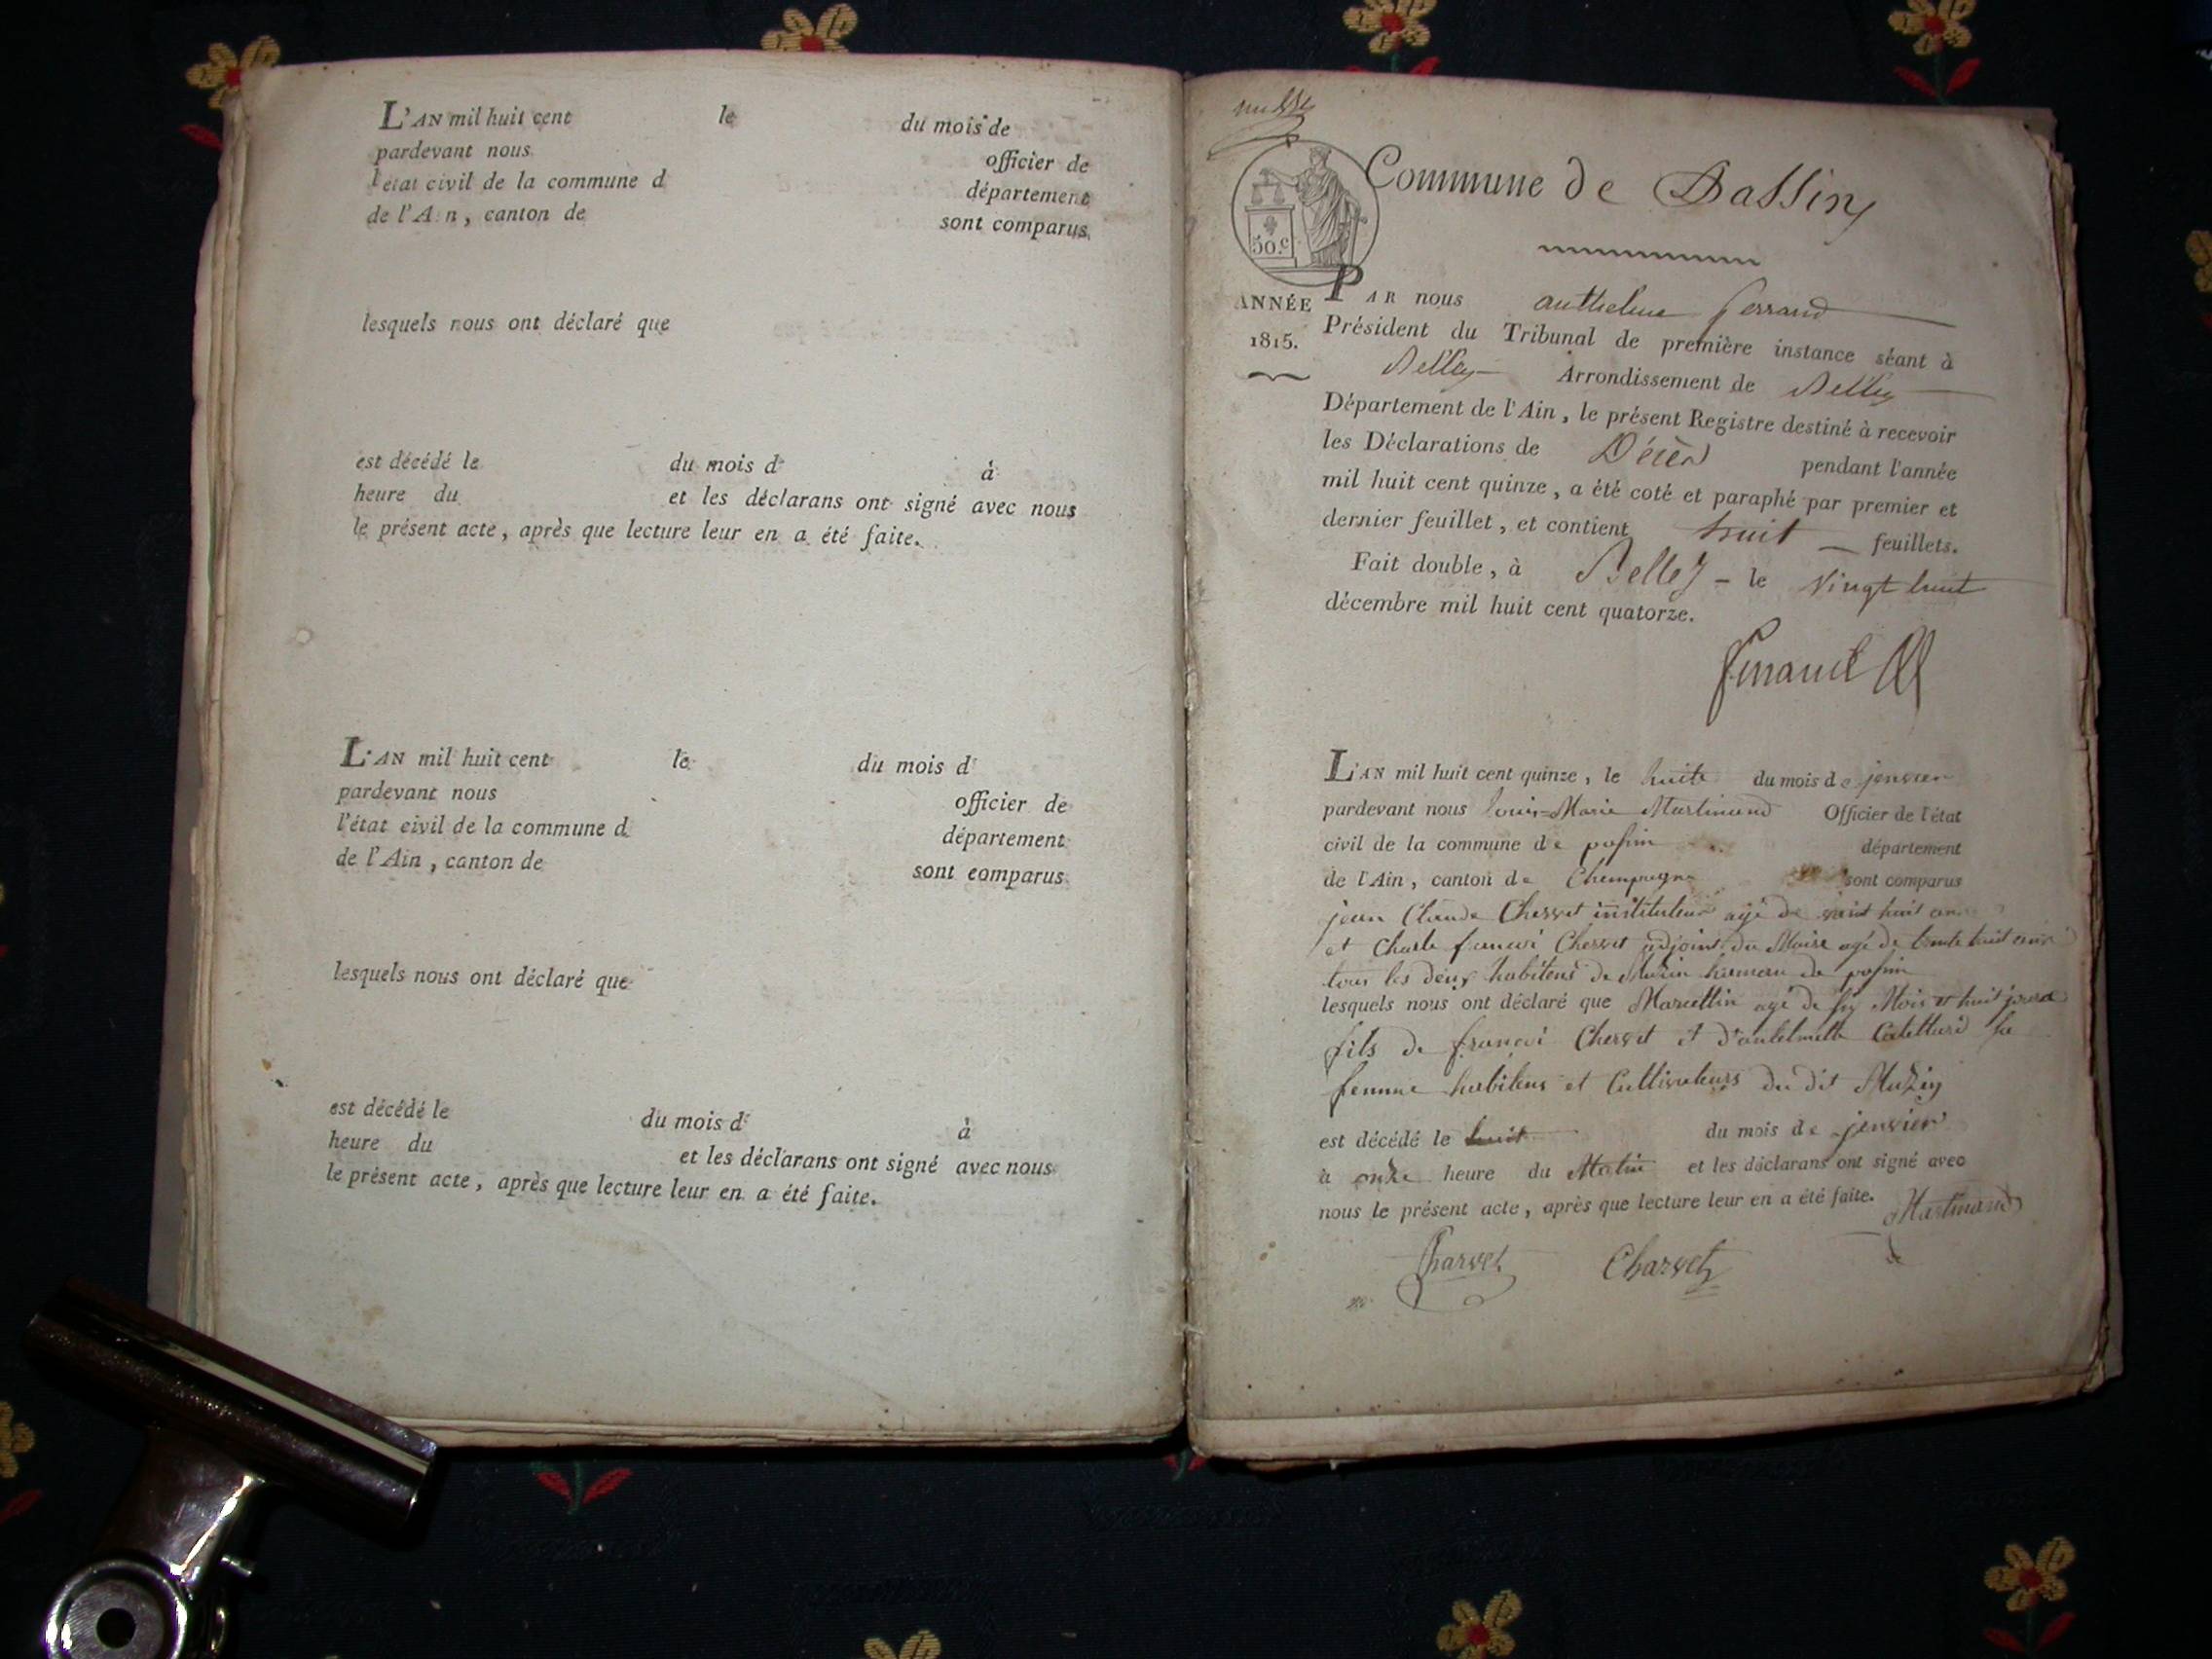 L'AN mil huit cent le du mois de
pardevant nous officier de
l'état civil de la commune d département
de l'Ain, canton de sont comparus
lesquels nous ont déclaré que
est décédé le du mois d à
heure du et les déclarans ont signé avec nous
le présent acte, après que lecture leur en a été faite.
L'AN mil huit cent le du mois d
pardevant nous officier de
l'état civil de la commune d département
de l'Ain, canton de sont comparus
lesquels nous ont déclaré que
est décédé le du mois d à
heure du et les déclarans ont signé avec nous
le présent acte, après que lecture leur en a été faite.
Commune de
50.c
ANNÉE
1815.
PAR nous anthelme ferrand
Président du Tribunal de première instance séant à
Belley Arrondissement de Belley
Département de l'Ain, le présent Registre destiné à recevoir
les Déclarations de Décès pendant l'année
mil huit cent quinze, a été coté et paraphé par premier et
dernier feuillet, et contient huit feuillets.
Fait double, à Belley - le vingt huit
décembre mil huit cent quatorze.
L'AN mil huit cent quinze, le huite du mois de jenvier
pardevant nous louis=Marie Martinand Officier de l'état
civil de la commune de posin département
de l'Ain, canton de Champagne sont comparus
jean Claude Chervet instituteur agé de huit ans
et Charle francoi Chervet adjoint du Maire agé de trente huit ans
tous les deux habitens de Muzin hameau de posin
lesquels nous ont déclaré que Marcellin agé de six Mois et huit jours
fils de francoi Chervet et sa
femme habitens et Cultivateurs du dit Muzin
est décédé le huit du mois de jenvier
à onze heure du Matin et les déclarans ont signé avec
nous le présent acte, après que lecture leur en a été faite. Martinand
Charvet Charvet